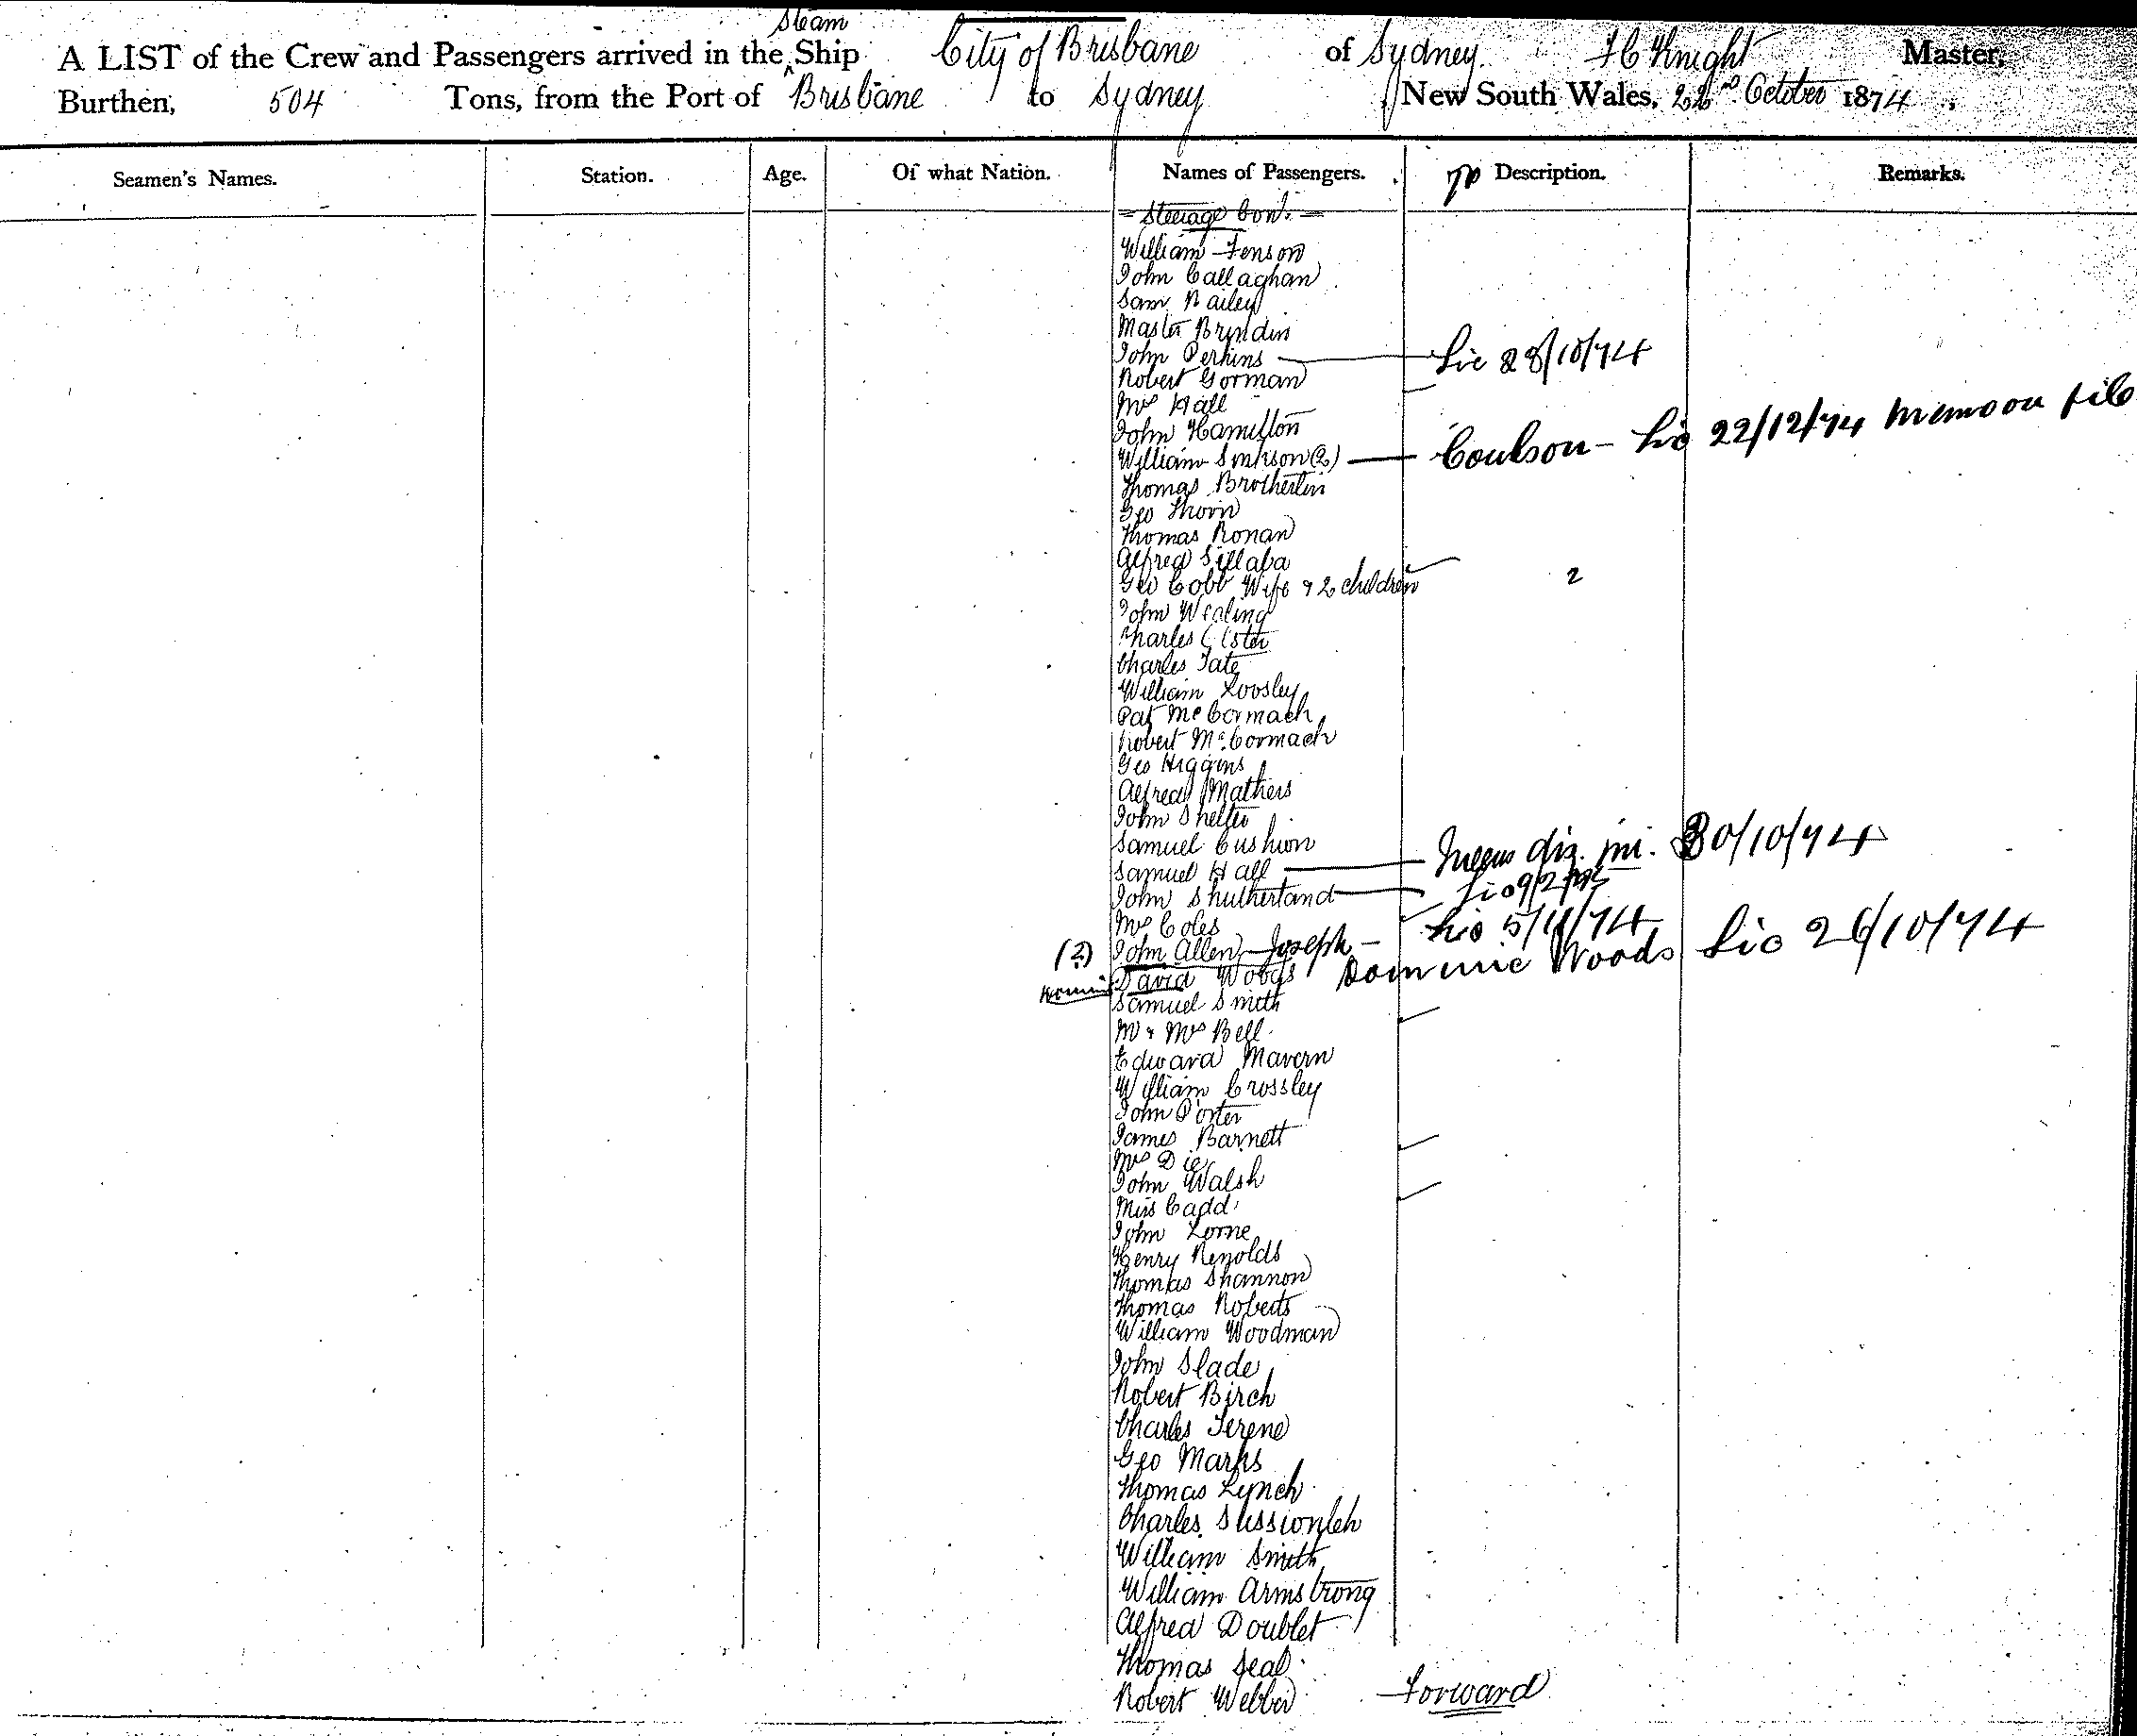 A LIST of the Crew and Passengers arrived in the Steam Ship City of Brisbane of Sydney. Master,
Burthen, 504 Tons, from the Port of Brisbane to Sydney New South Wales, 22nd October 1874.
Seamen's Names. Station. Age. Of what Nation. Names of Passengers. Description. Remarks.
= Steerage Cont. =
William Fenson
John Callaghan
Sam Bailey
Master
John Perkins 28/10/74
Robert Gorman
Mrs Hall
John Hamilton
William (2) Coulson 22/12/74
Thomas
Geo Thorn
Thomas Ronan
Alfred
Geo Cobb Wife & 2 children 2
John
Charles
Charles Tate
William Loosley
Pat McCormack
Robert McCormack
Geo Higgins
Alfred Mathers
John
Samuel Cushion
Samuel Hall 30/10/74
John Shutherland
Mrs Coles
(2) John Allen Joseph 5/11/74
David Woods Dominic Woods 26/10/74
Samuel Smith
Mr & Mrs Bell
Edward Mavern
William Crossley
John Porter
James Barnett
Mrs
John Walsh
Miss Cadd
John Lorne
Henry Renolds
Thomas Shannon
Thomas Roberts
William Woodman
John Slade
Robert Birch
Charles
Geo Marks
Thomas Lynch
Charles
William Smith
William Armstrong
Alfred Doublet
Thomas Seal
Robert Webber Forward